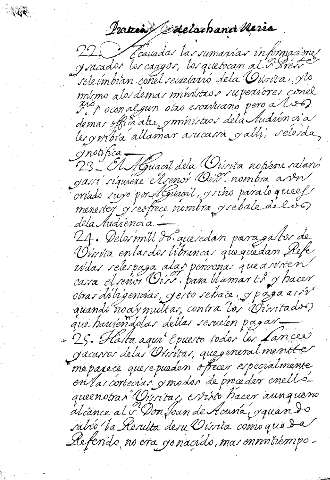 22. Acabadas las sumarias informaciones
y sacados los cargos, los que tocan al
se le imbian con el secretario de la Visita, y lo
mismo a los demas ministros superiores con el
o con algun otro escriuano pero a los
demas y ministros de la Audiencia
les embia a llamar a su casa y alli se les da,
y notifica
23. El Alguacil de la Visita no tiene salario
y assi si quiere el señor Visr. nombra a un
criado suyo por Alguacil, y sino para lo que es
menester y se ofrece nombra y señala de los
de la Audiencia
24. De los mill ds. que se dan para gastos de
Visita en las dos librancas que quedan Refe
ridas se les paga a las personas que asisten
casa el señor Visr. para llamar y hacer
otras diligencias, y esto se tace, y paga assi
quando no ay multas, contra los Visitados
que hauiendolas dellas se suelen pagar
25. Hasta aqui è puesto todos los lances
y acasos de las Visitas, que generalmente
me parece que se pueden ofrecer especialmente
en las cortesias y modos de proceder en ello
que en otras Visitas, e visto hacer aunque no
alcance al s. Don Juan de Acuña, y quando
salio la Resulta de su Visita como queda
Referido, no era yo nacido, mas en mi tiempo